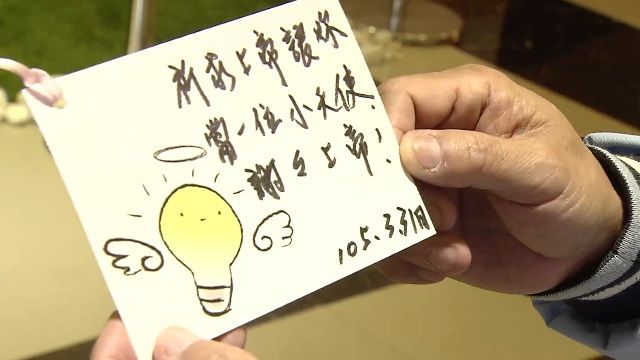 祈求上帝讓妳
當一位小天使,
謝々上帝!
105.3.31日